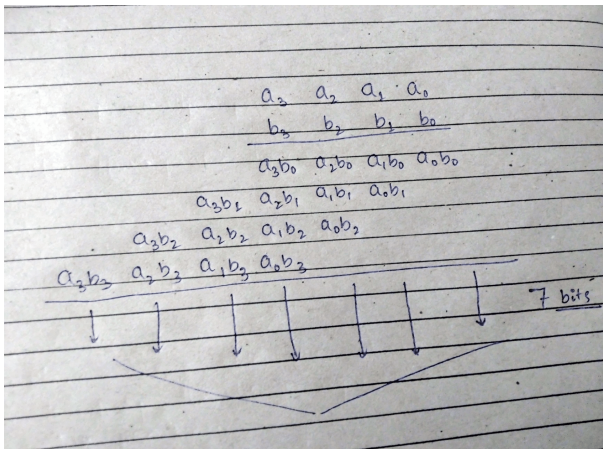 a₃ a₂ a₁ a₀
b₃ b₂ b₁ b₀
a₃b₀ a₂b₀ a₁b₀ a₀b₀
a₃b₁ a₂b₁ a₁b₁ a₀b₁
a₃b₂ a₂b₂ a₁b₂ a₀b₂
a₃b₃ a₂b₃ a₁b₃ a₀b₃
7 bits